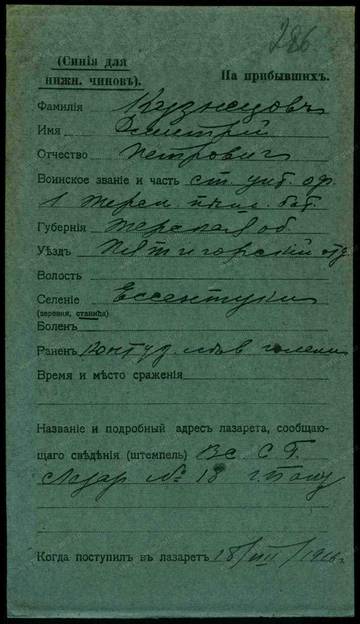 286
(Синія для
нижн. чиновъ).
На прибывшихъ.
Фамилія Кузнецовъ
Имя Дмитрій
Отчество Петрович
Воинское званіе и часть ст. унт. оф.
1 Терск. пласт. бат.
Губернія Терская об.
Уѣздъ Пятигорскій отд
Волость
Селеніе Ессентуки
(деревня, станица).
Боленъ
Раненъ контуз. лѣв голени
Время и мѣсто сраженія
Названіе и подробный адресъ лазарета, сообщаю-
щаго свѣдѣнія (штемпель) Вс. С. Г.
Лазар № 18
Когда поступилъ въ лазаретъ 18/VIII/1916 г.